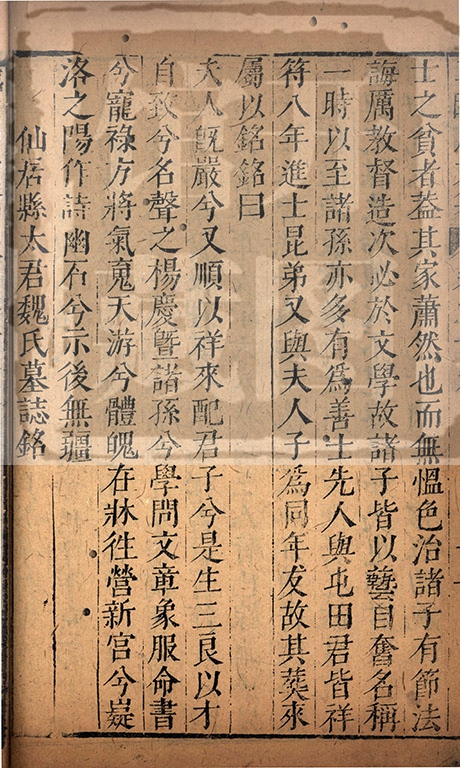 士之貧者葢其家蕭然也而無愠色治諸子有節法
誨厲教督造次必於文學故諸子皆以藝自奮名稱
一時以至諸孫亦多有爲善士先人與屯田君皆祥
符八年進士昆弟又與夫人子爲同年友故其葬來
屬以銘銘曰
夫人旣嚴兮又順以祥來配君子兮是生三良以才
自致兮名聲之楊慶曁諸孫兮學問文章象服命書
兮寵祿方將氣䰟天游兮體魄在牀徃營新宫兮嶷
洛之陽作詩幽石兮示後無疆
仙居縣太君魏氏墓誌銘